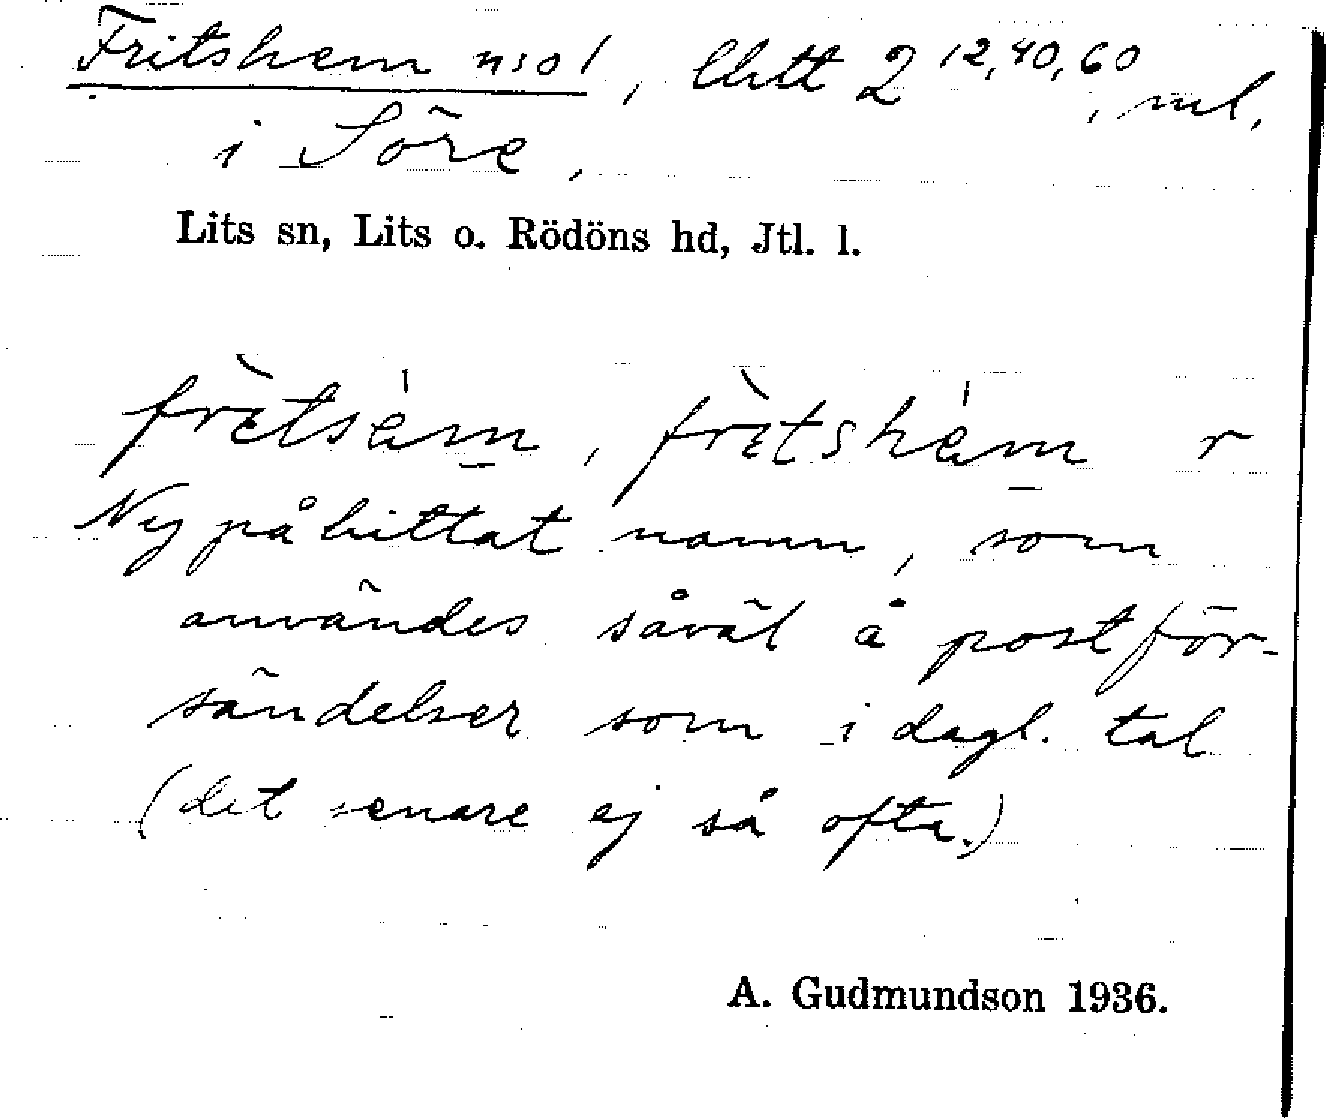 Fritshem nso1, Utt 2 12,40,60, ml.
i Söre,
Lits sn, Lits o. Rödöns hd, Jtl. l.
frìtsem, frìtshem r
Ny påhittat namn, som
användes såväl å postför-
sändelser som i dagl. tal
(det senare ej så ofta.)
A. Gudmundson 1936.